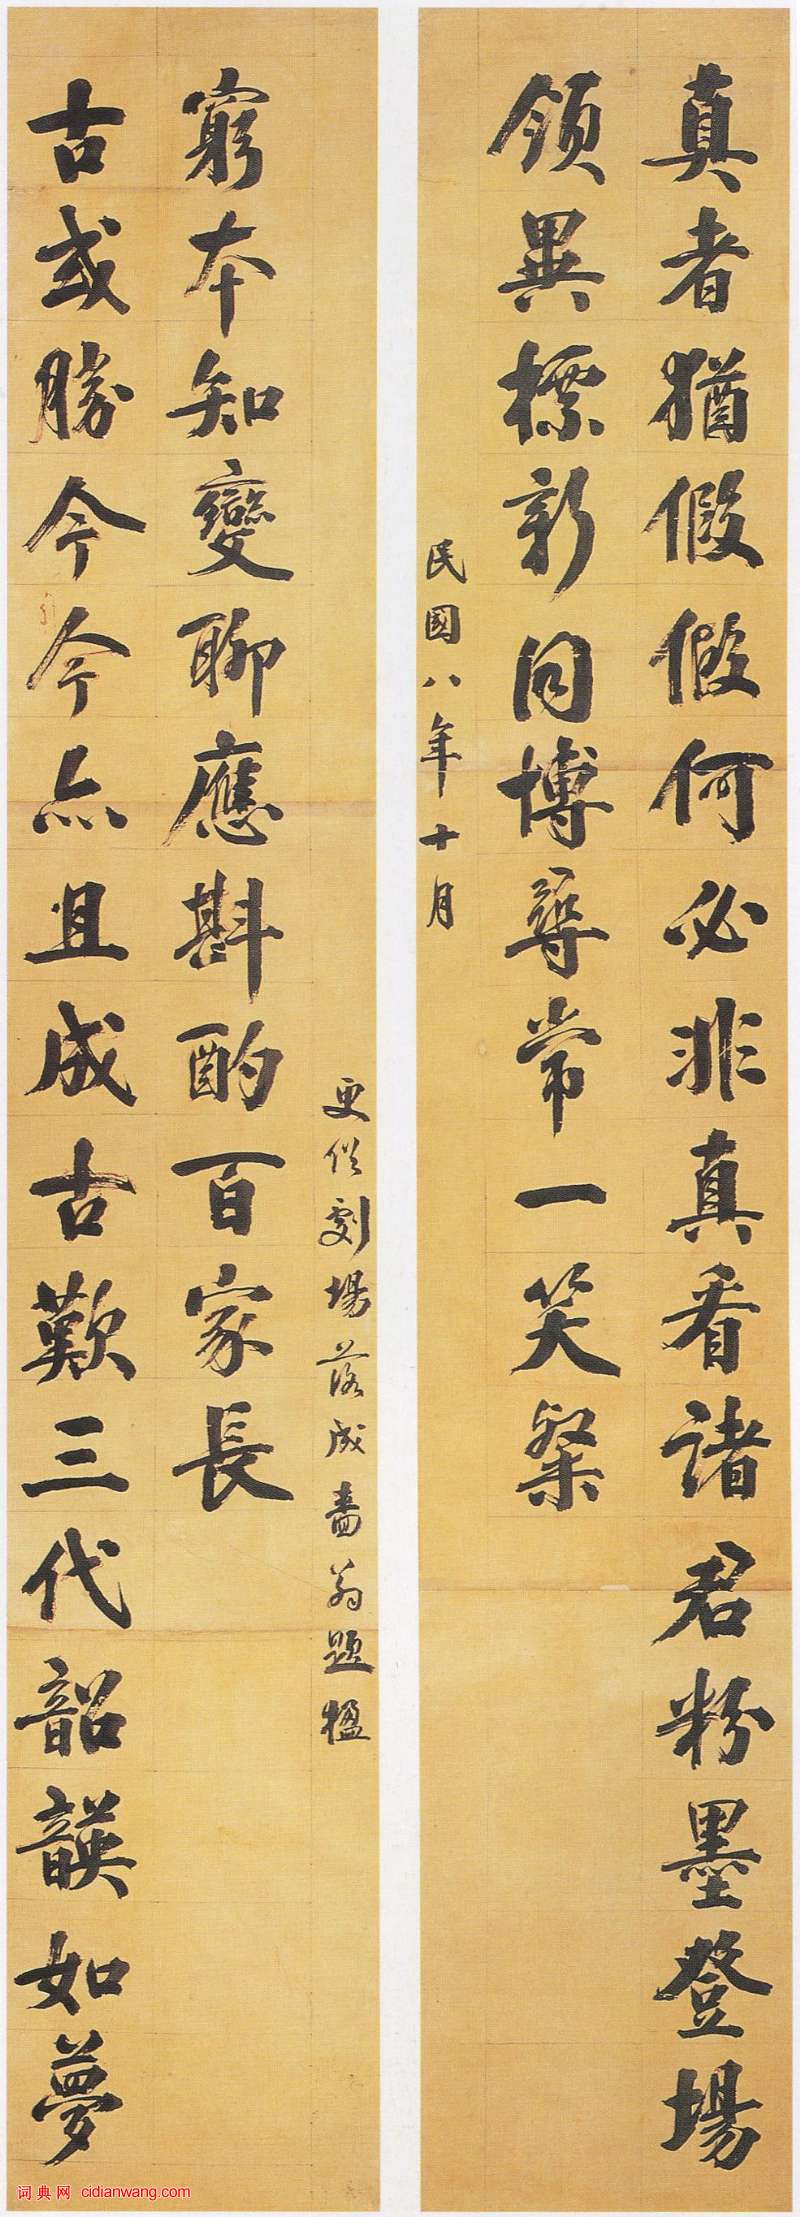 真者猶假假何必非真看諸君粉墨登場
領異標新同博尋常一笑粲
民國八年十月
古或勝今今亦且成古歎三代韶韺如夢
窮本知變聊應斟酌百家長
更俗劇場落成嗇翁題楹
词典网 cidianwang.com